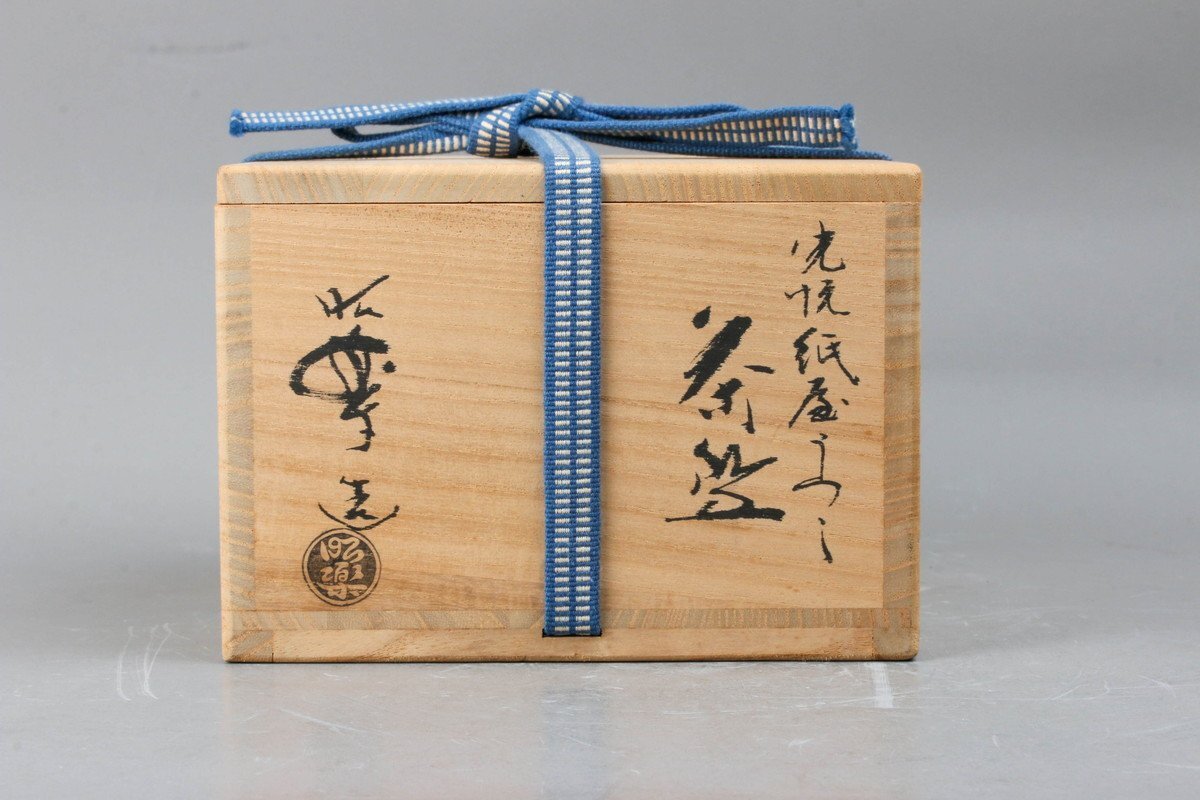 光悦紙屋うつし
茶盌
昭楽造
昭楽